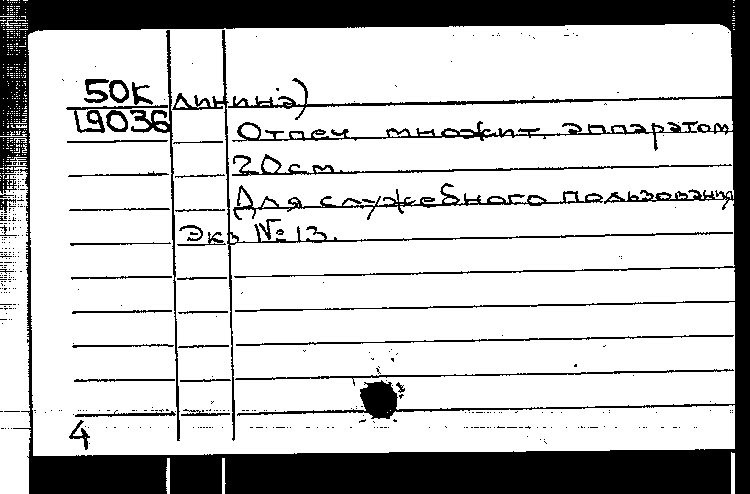 50К линина)
19036 Отпеч. множит. аппаратом
20см.
Для служебного пользования
Экз №13.
4